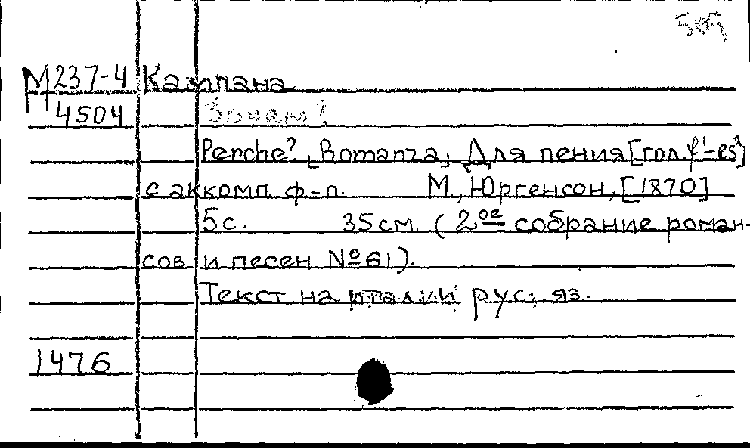 М237-4 Кампана
4504 Зачем?
Perche? Romanza. Для пения [гол. f'-es²]
с аккомп. ф-п. М., Юргенсон, [1870]
5 с. 35 см. (2ое собрание роман-
сов и песен № 61).
Текст на итал. и рус. яз.
1476